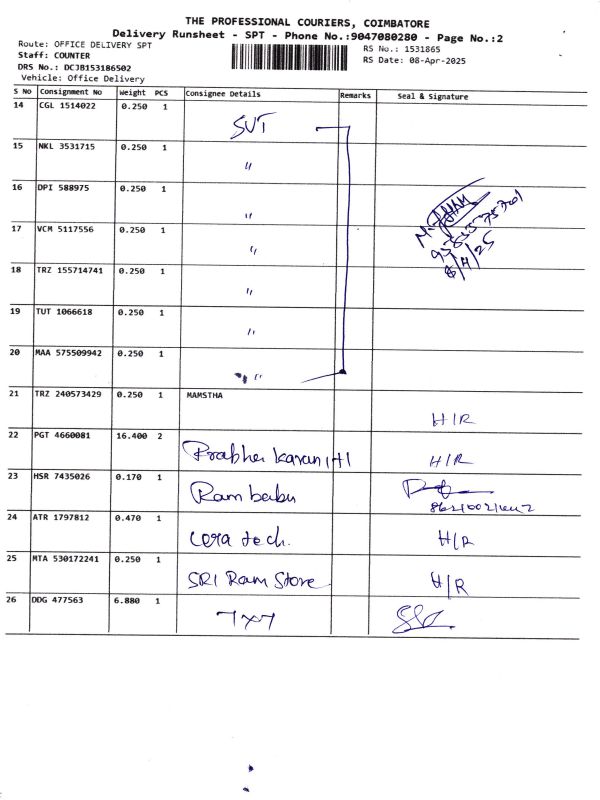 THE PROFESSIONAL COURIERS, COIMBATORE
Delivery Runsheet - SPT - Phone No.:9047080280 - Page No.:2
Route: OFFICE DELIVERY SPT
Staff: COUNTER
DRS No.: DCJB153186502
Vehicle: Office Delivery
RS No.: 1531865
RS Date: 08-Apr-2025
S No Consignment No Weight PCS Consignee Details Remarks Seal & Signature
14 CGL 1514022 0.250 1 SVT
15 NKL 3531715 0.250 1 "
16 DPI 588975 0.250 1 "
17 VCM 5117556 0.250 1 "
18 TRZ 155714741 0.250 1 "
19 TUT 1066618 0.250 1 "
20 MAA 575509942 0.250 1 "
8/4/25
21 TRZ 240573429 0.250 1 MAMSTHA H/R
22 PGT 4660081 16.400 2 H/R
23 HSR 7435026 0.170 1 Ram babu
24 ATR 1797812 0.470 1 cera tech. H/R
25 MTA 530172241 0.250 1 SRI Ram Store H/R
26 DDG 477563 6.880 1 7x7